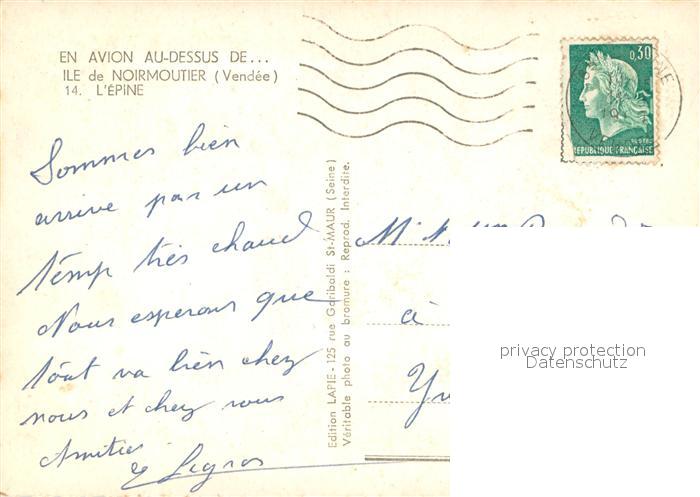 EN AVION AU-DESSUS DE...
ILE de NOIRMOUTIER (Vendée)
14. L'ÉPINE
Sommes bien
arrivé par un
temp très chaud
Nous esperons que
tout va bien chez
nous et chez vous
Amitiés
Legros
Edition LAPIE - 125 rue Garibaldi St-MAUR (Seine)
Véritable photo au bromure : Reprod. Interdite.
0,30
REPUBLIQUE FRANÇAISE
M. M
à
privacy protection
Datenschutz